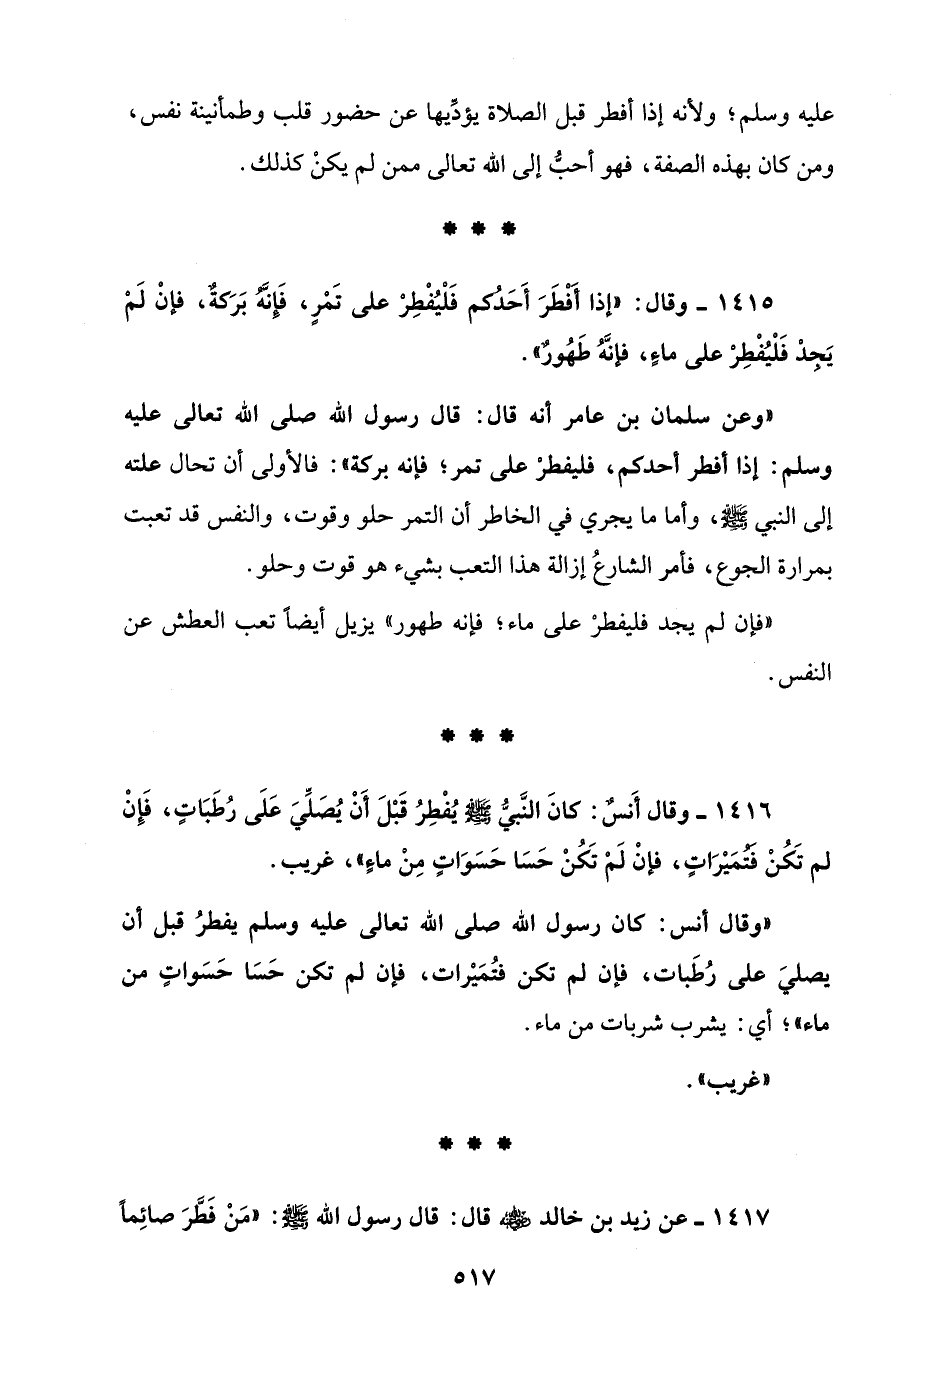 عليه وسلم؛ ولأنه إذا أفطر قبل الصلاة يؤدِّيها عن حضور قلب وطمأنينة نفس،
ومن كان بهذه الصفة، فهو أحبُّ إلى الله تعالى ممن لم يكنْ كذلك.
* * *
١٤١٥ - وقال: «إذا أَفْطَرَ أَحَدُكم فَلْيُفْطِرْ على تَمْرٍ، فَإِنَّهُ بَرَكةٌ، فإنْ لَمْ
يَجِدْ فَلْيُفْطِرْ على ماءٍ، فإنَّهُ طَهُورٌ».
«وعن سلمان بن عامر أنه قال: قال رسول الله صلى الله تعالى عليه
وسلم: إذا أفطر أحدكم، فليفطرْ على تمر؛ فإنه بركة»: فالأولى أن تحال علته
إلى النبي ﷺ، وأما ما يجري في الخاطر أن التمر حلو وقوت، والنفس قد تعبت
بمرارة الجوع، فأمر الشارعُ إزالة هذا التعب بشيء هو قوت وحلو.
«فإن لم يجد فليفطرْ على ماء؛ فإنه طهور» يزيل أيضاً تعب العطش عن
النفس.
* * *
١٤١٦ - وقال أَنسٌ: كانَ النَّبيُّ ﷺ يُفْطِرُ قَبْلَ أَنْ يُصَلِّيَ عَلَى رُطَبَاتٍ، فَإِنْ
لم تَكُنْ فَتُمَيْرَاتٍ، فإنْ لَمْ تَكُنْ حَسَا حَسَوَاتٍ مِنْ ماءٍ»، غريب.
«وقال أنس: كان رسول الله صلى الله تعالى عليه وسلم يفطرُ قبل أن
يصليَ على رُطَبات، فإن لم تكن فتُمَيْرات، فإن لم تكن حَسَا حَسَواتٍ من
ماء»؛ أي: يشرب شربات من ماء.
«غريب».
* * *
١٤١٧ - عن زيد بن خالد ﷺ قال: قال رسول الله ﷺ: «مَنْ فَطَّرَ صائِماً
٥١٧